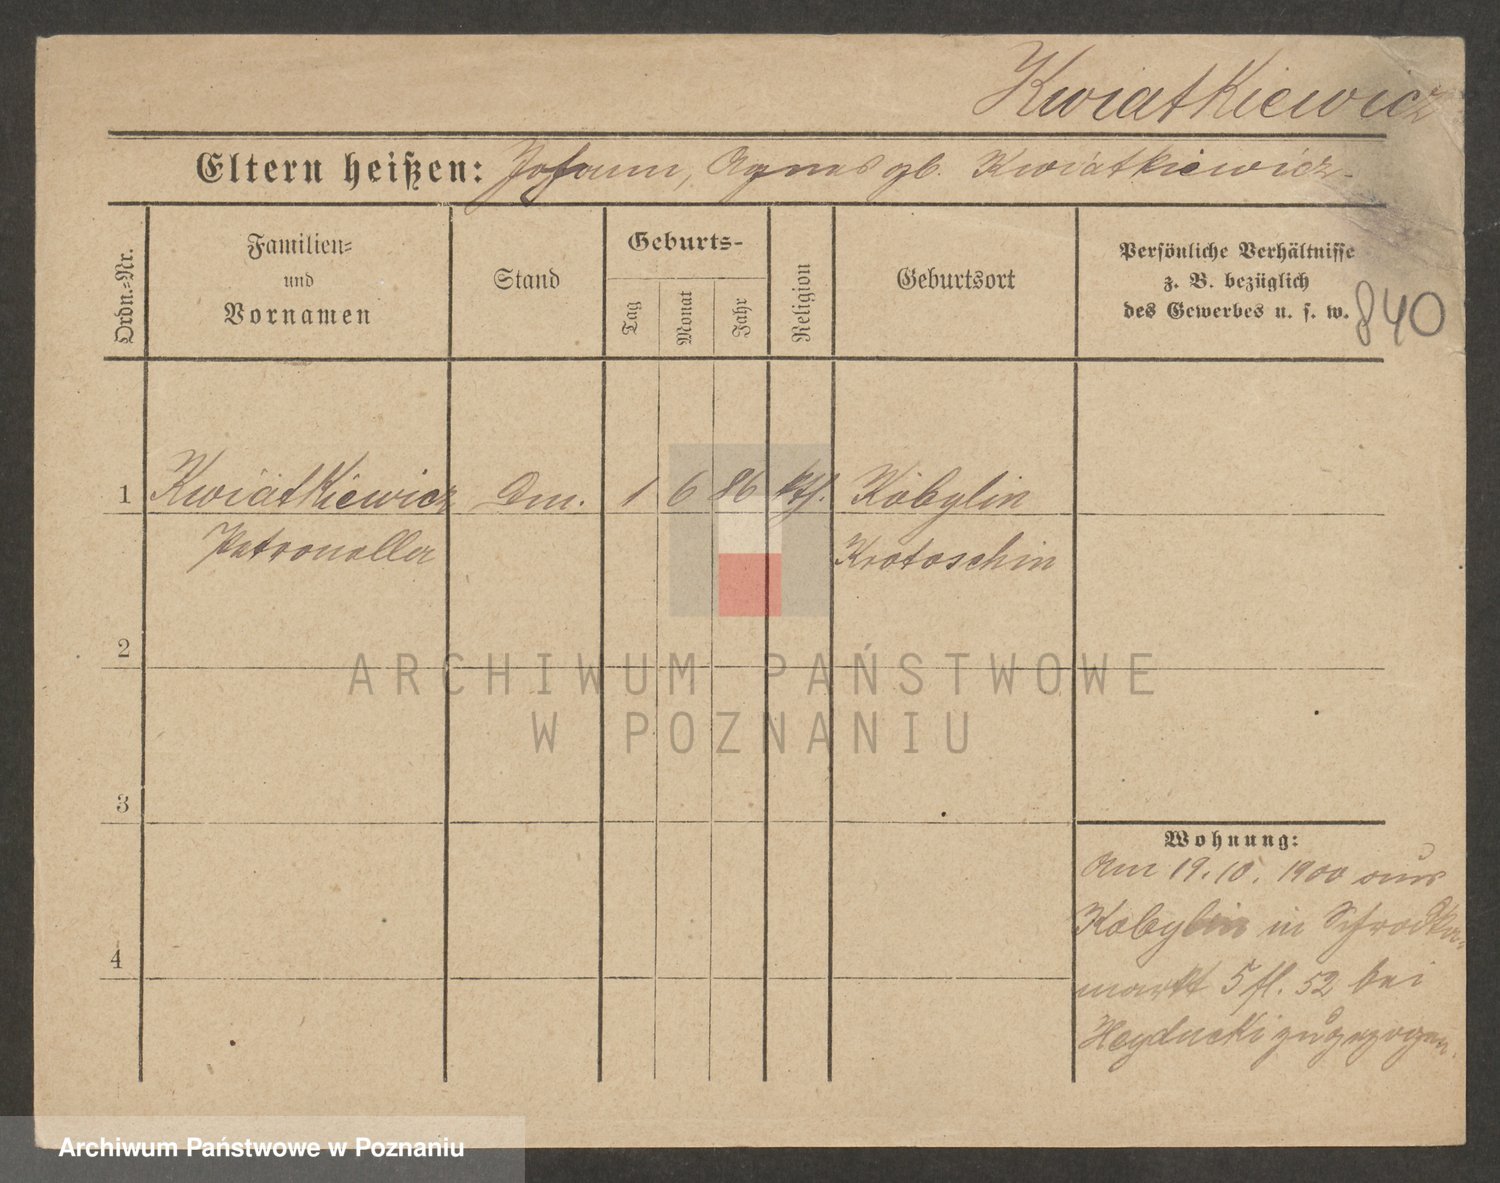 Kwiatkiewicz
Eltern heißen: Johann, Agnes gb. Kwiatkiewicz
Ordn.=Nr.
Familien=
und
Vornamen
Stand
Geburts-
Tag
Monat
Jahr
Religion
Geburtsort
Persönliche Verhältnisse
z. B. bezüglich
des Gewerbes u. s. w.
840
1 Kwiatkiewicz Dm. 1 6 86 kth. Kobylin
Petronella Krotoschin
2
ARCHIWUM PAŃSTWOWE
W POZNANIU
3
Wohnung:
Am 19.10.1900 aus
Kobylin in Schrodka
4
markt 5 fl. 52 bei
Heyducki zugezogen.
Archiwum Państwowe w Poznaniu